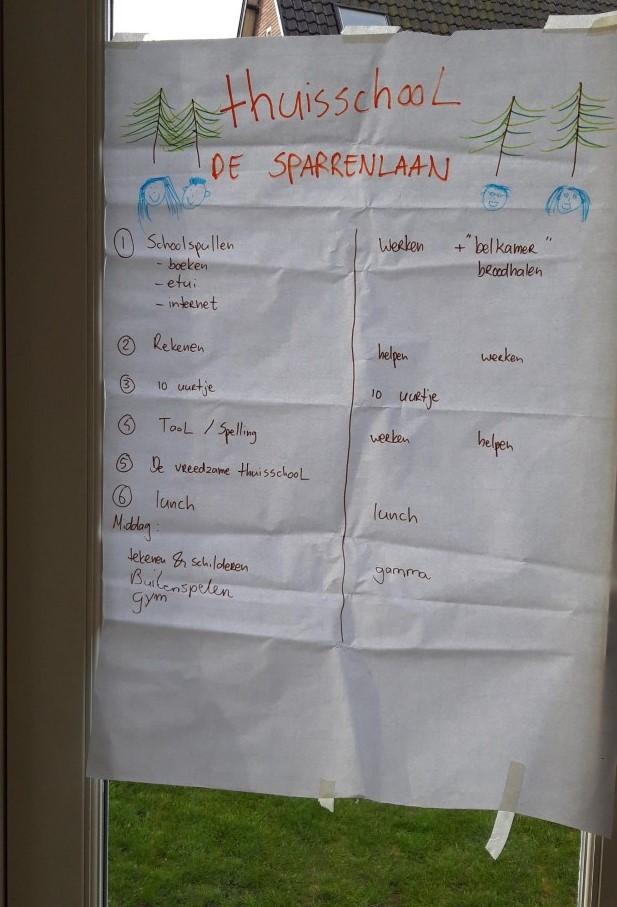 thuisschool
DE SPARRENLAAN
① Schoolspullen werken + "belkamer"
- boeken broodhalen
- etui
- internet
② Rekenen helpen werken
③ 10 uurtje 10 uurtje
④ TaaL / Spelling werken helpen
⑤ De vreedzame thuisschooL
⑥ lunch lunch
Middag:
tekenen & schilderen gamma
Buitenspelen
gym